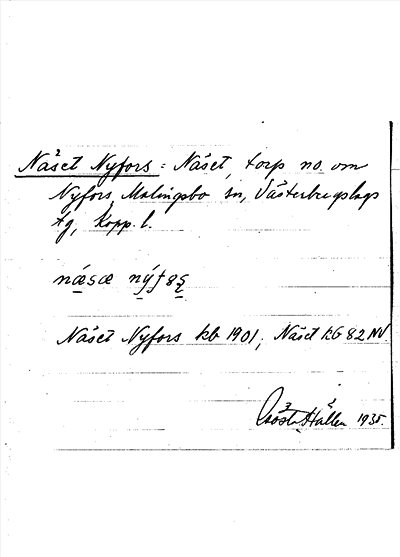 Näset Nyfors = Näset, torp no. om
Nyfors, Malingsbo sn, Västerbergslags
tg, Kopp. l.
næsæ nýfȣʂ
Näset Nyfors kb 1901; Näset kG 82 NV
Gösta Hallén 1935.